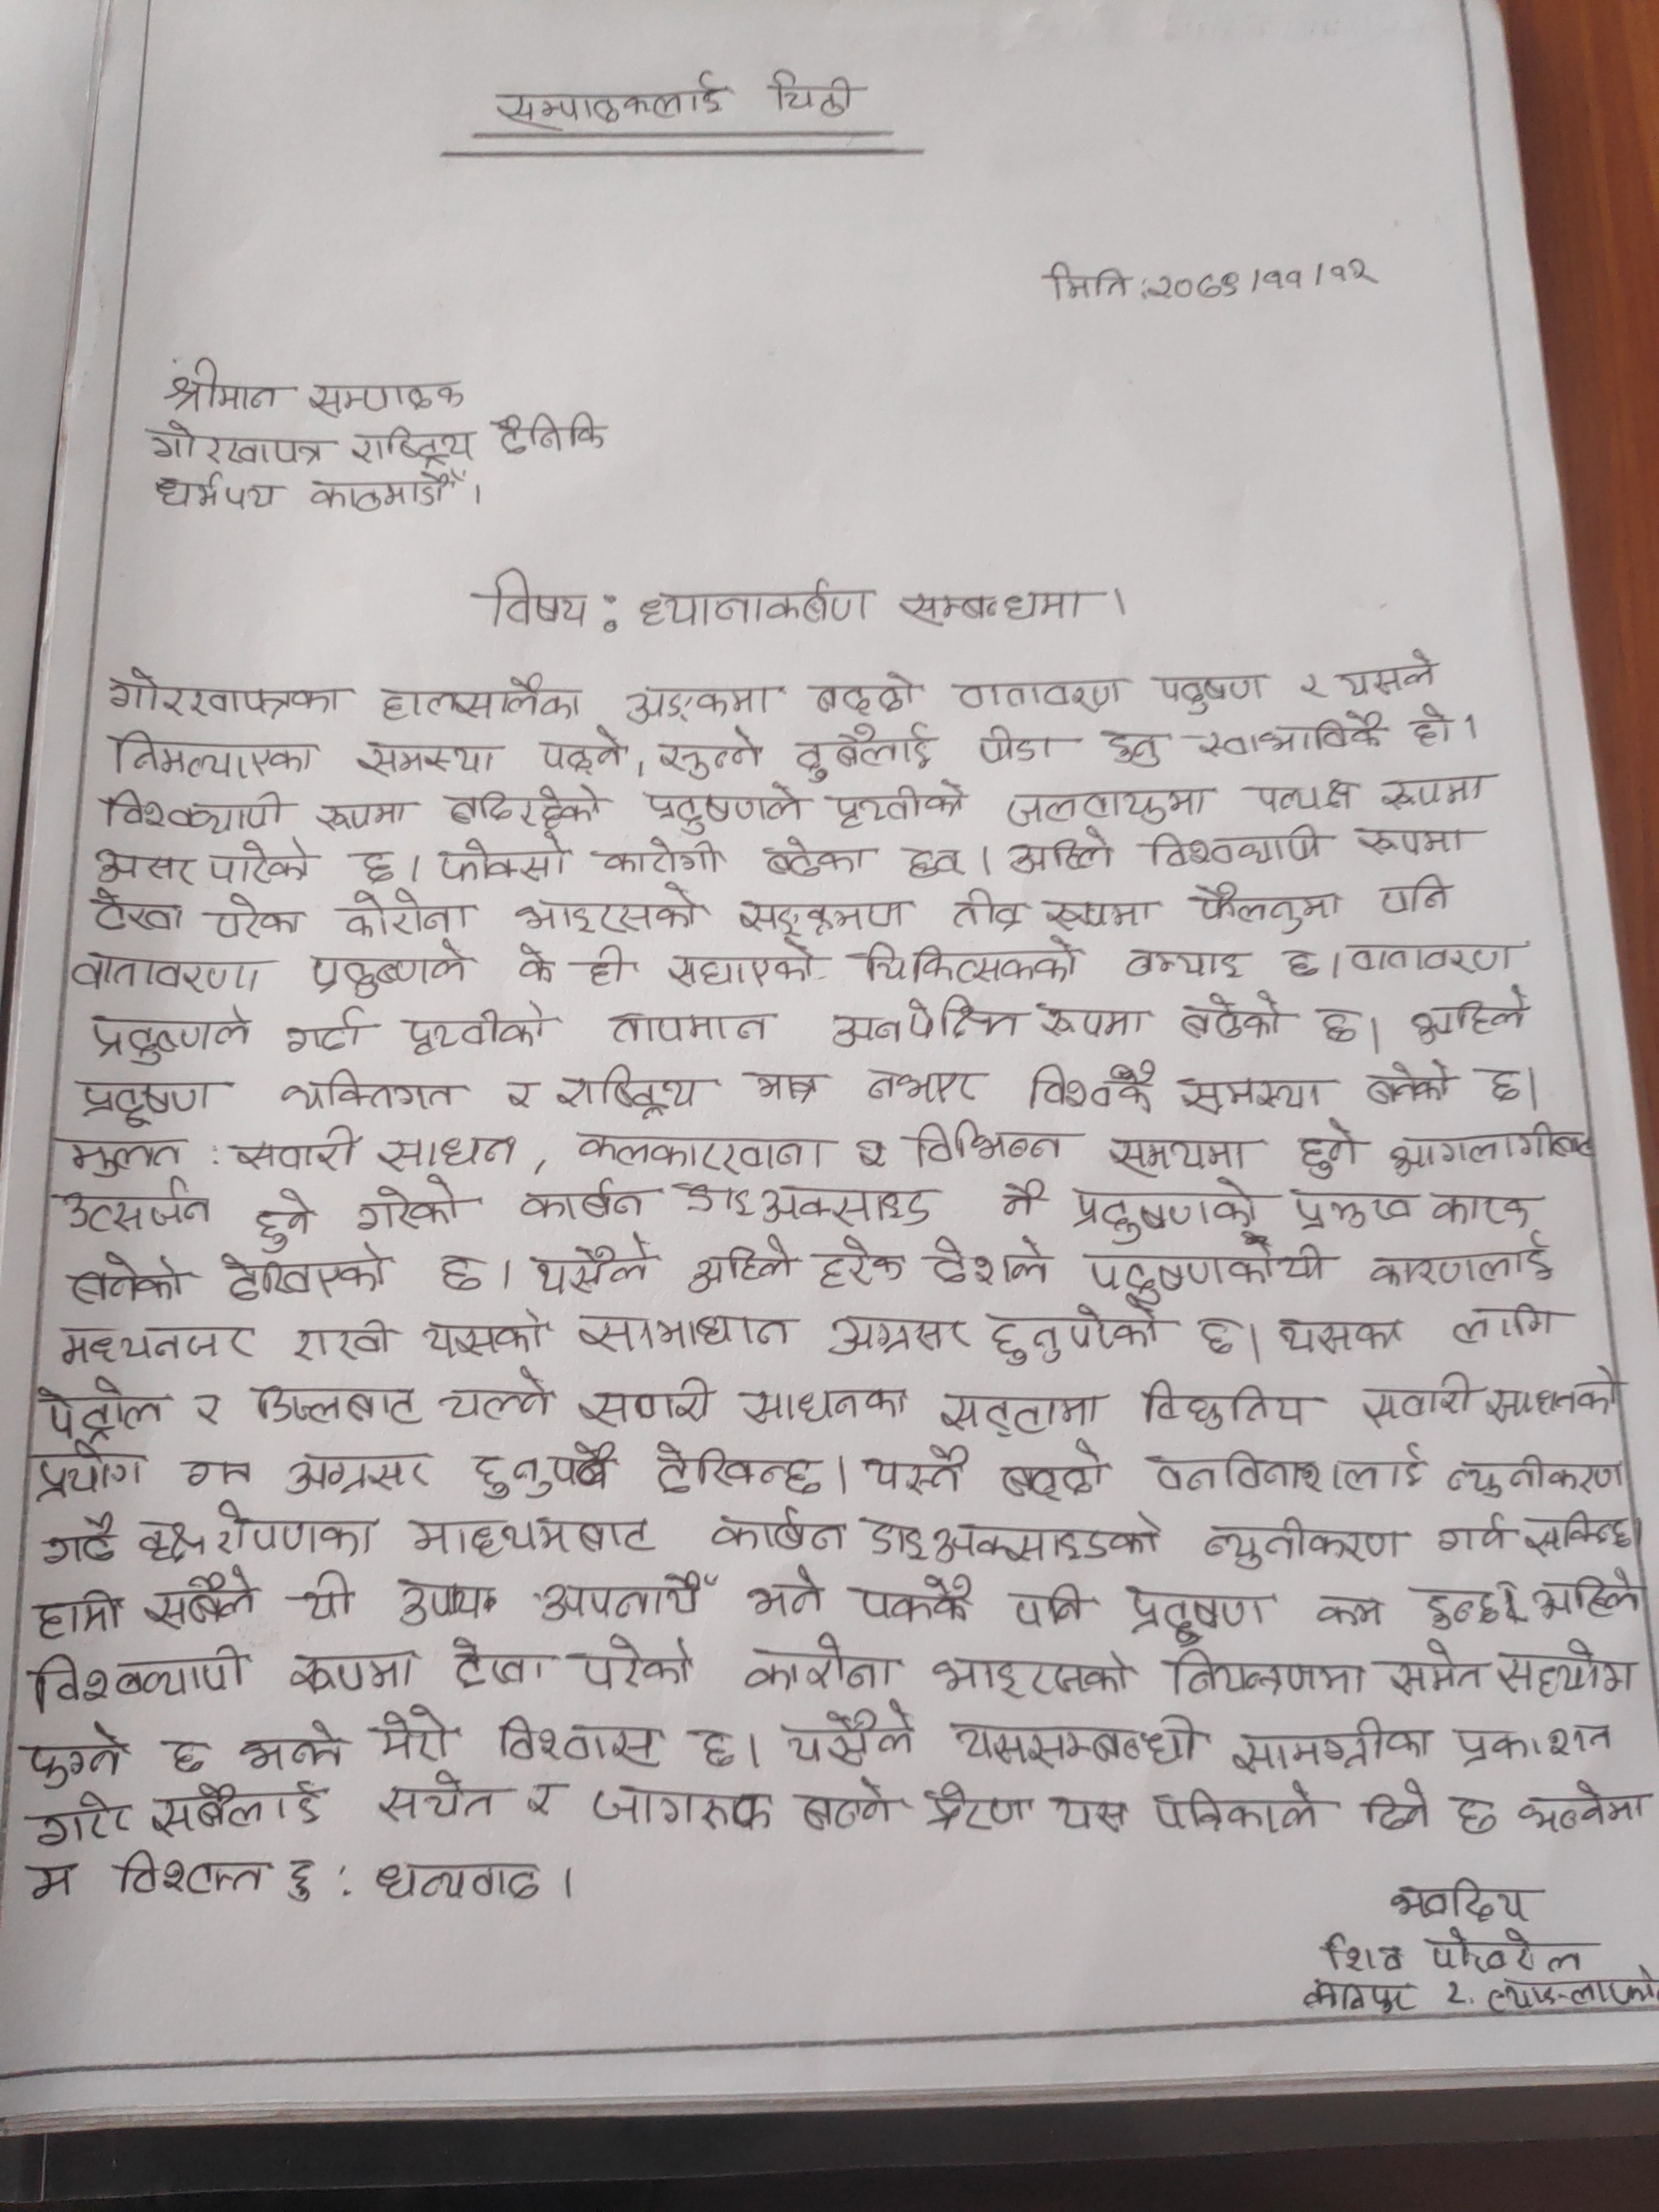 सम्पादकलाई चिठी
मिति:२०७९/११/१२
श्रीमान सम्पादक
गोरखापत्र राष्ट्रिय दैनिकि
धर्मपथ काठमाडौँ।
विषय: ध्यानाकर्बण सम्बन्धमा।
गोरखापत्रका हालसालैका अङ्कमा बढ्दो वातावरण पदुषण र यसले
निम्त्याएका समस्या पढ्ने, सुन्ने दुबैलाई पीडा हुनु स्वाभाविकै हो।
विश्वव्यापी रूपमा बढिरहेको प्रदुषणले पृथ्वीको जलवायुमा पत्यक्ष रूपमा
असर पारेको छ। फोक्सो कारोगी बढेका छन्। अहिले विश्वव्यापी रूपमा
देखा परेका कोरोना भाइरसको सङ्क्रमण तीव्र रूपमा फैलनुमा पनि
वातावरण प्रदुष्णले के ही सघाएको चिकित्सकको छ। वातावरण
प्रदुष्णले गर्दा पृथ्वीको तापमान अनपेक्षित रूपमा बढेको छ। अहिले
प्रदूषण व्यक्तिगत र राष्ट्रिय मात्र नभएर विश्वकै समस्या बनेको छ।
मुलत : सवारी साधन, कलकारखाना र विभिन्न समयमा हुने आगलागीबाट
उत्सर्जन हुने गरेको कार्बन डाइअक्साइड नै प्रदुषणको प्रमुख कारक
बनेको देखिएको छ। यसैले अहिले हरेक देशले पदुषणकोयी कारणलाई
मध्यनजर राखी यसको समाधान अग्रसर हुनुपरेको छ। यसका लागि
पेट्रोल र डिजलबाट चल्ने सवारी साधनका सट्टामा विद्युतिय सवारी साधनको
प्रयोग गर्न अग्रसर हुनुपर्ने देखिन्छ। यस्तै बढ्दो वनविनाशलाई न्युनीकरण
गर्दै वृक्षरोपणका माध्यमबाट कार्बन डाइअक्साइडको न्युनीकरण गर्न सकिन्छ।
हामी सबैले यी उपाय अपनायौँ भने पक्कै पनि प्रदूषण कम हुन्छ। अहिले
विश्वव्यापी रूपमा देखा परेको कारोना भाइरसको नियन्त्रणमा समेत सहयोग
पुग्ने छ भन्ने मेरो विश्वास छ। यसैले यससम्बन्धी सामग्रीका प्रकाशन
गरेर सबैलाई सचेत र जागरुक बन्ने प्रेरणा यस पत्रिकाले दिने छ भन्नेमा
म विश्वस्त छु : धन्यवाद।
भवदिय
शिव पोखरेल